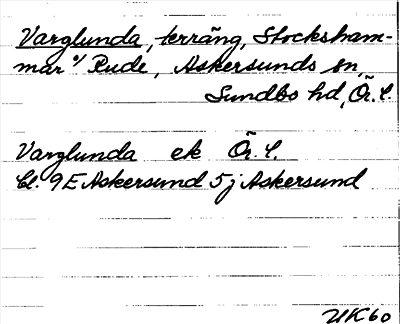 Varglunda, terräng, Stocksham-
mar o/ Rude, Askersunds sn,
Sundbo hd, Ör. l.
Varglunda ek Ör. l.
Bl. 9E Askersund 5j Askersund
UK60